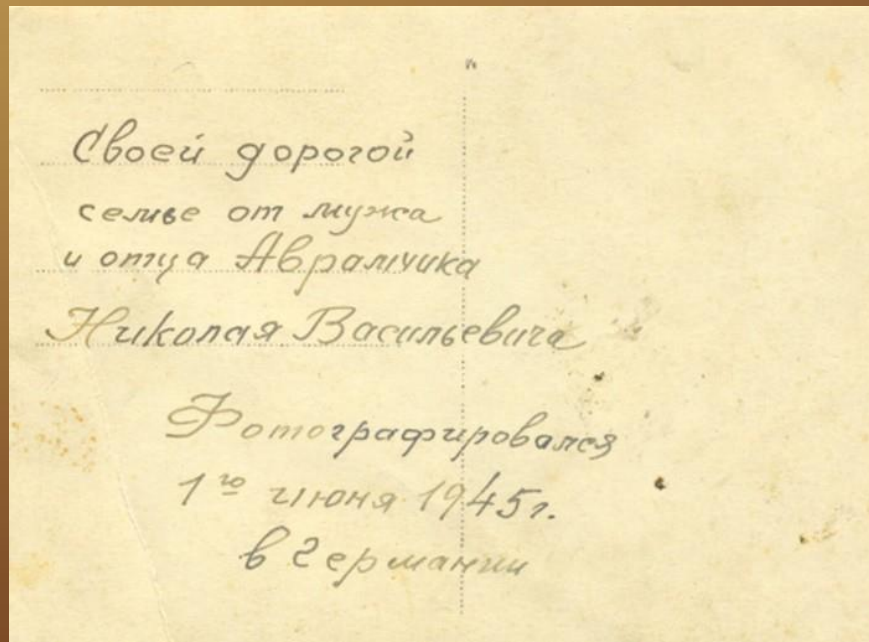 Своей дорогой
семье от мужа
и отца Аврамчика
Николая Васильевича
Фотографировался
1го июня 1945г.
в Германии